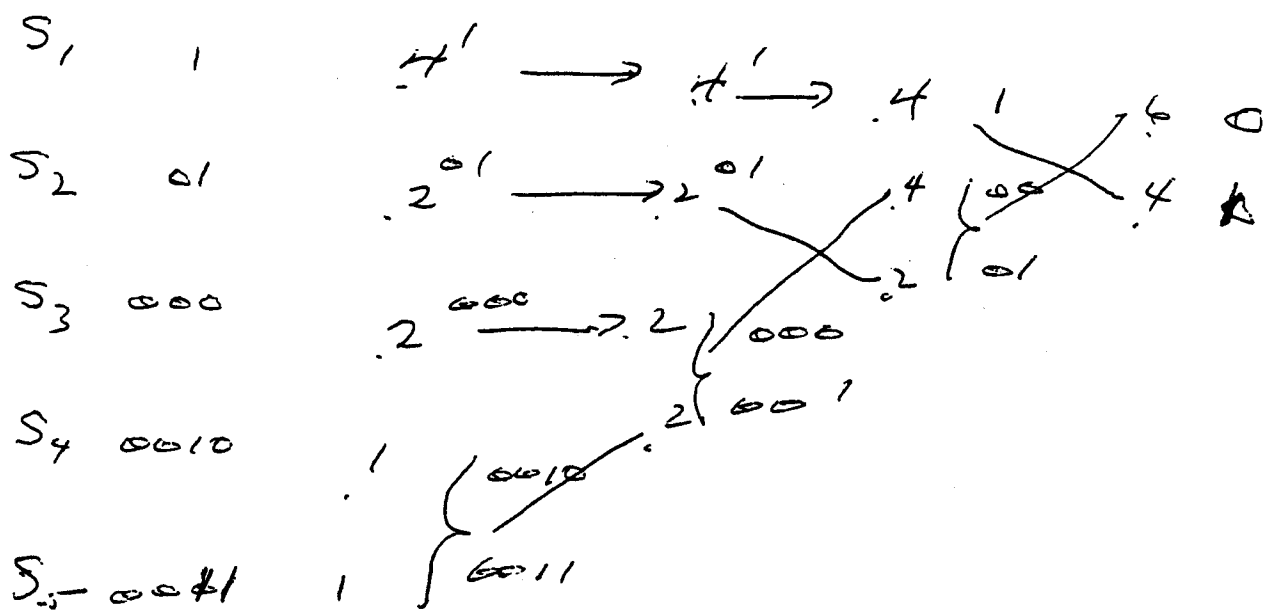 S1 1 .4 1 → .4 1 → .4 1 .6 0
S2 01 .2 01 → .2 01 .4 00 .4 1
.2 01
S3 000 .2 000 → .2 000
.2 001
S4 0010 .1 0010
S5 0011 1 0011